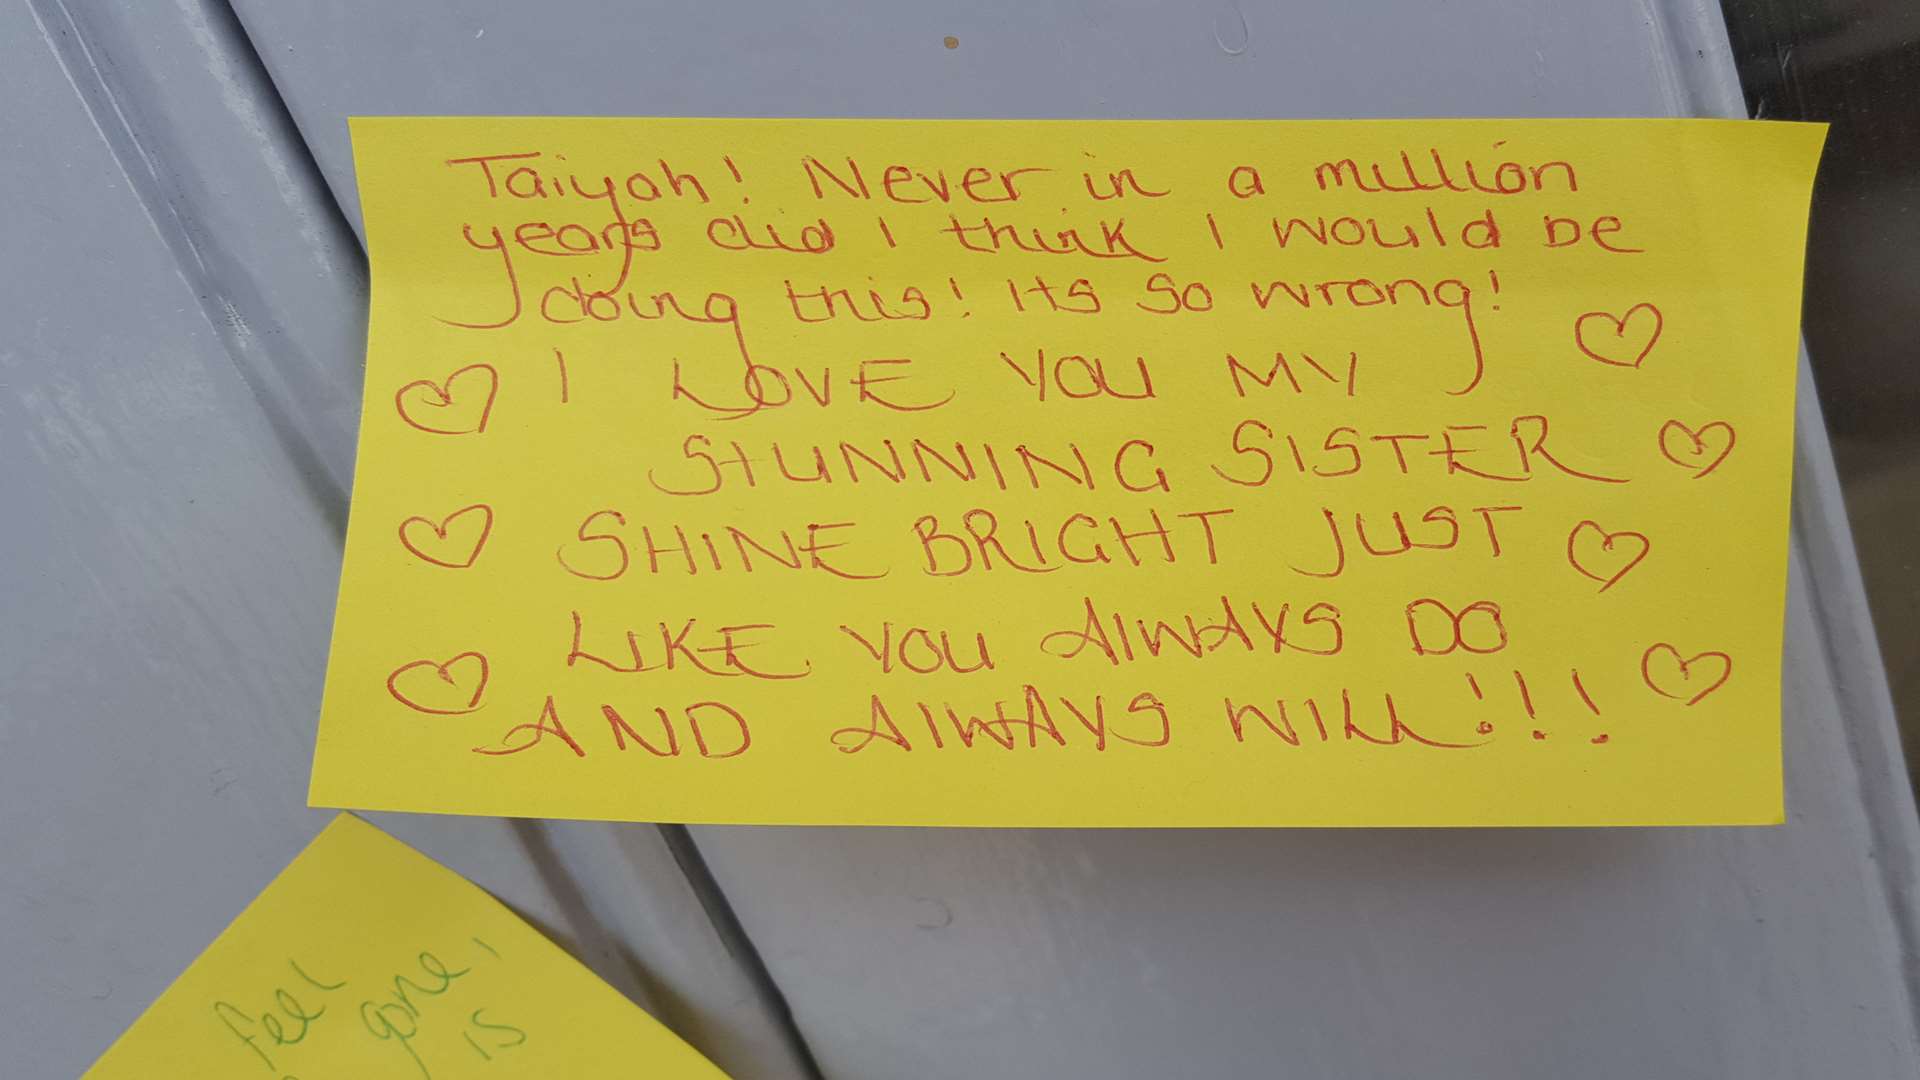 Taiyah! Never in a million
years did I think I would be
doing this! Its so wrong!
I LOVE YOU MY
STUNNING SISTER
SHINE BRIGHT JUST
LIKE YOU AlWAYS DO
AND AlWAYS WILL!!!
feel
gone,
is